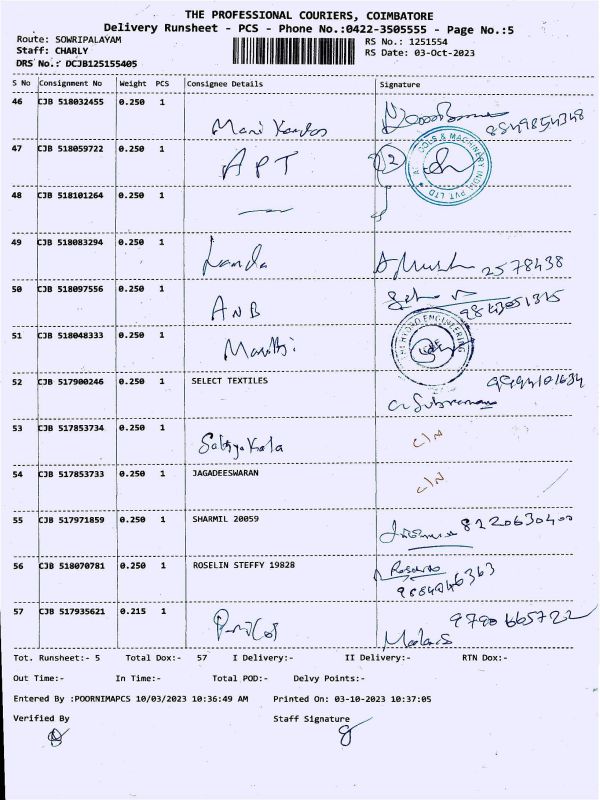 THE PROFESSIONAL COURIERS, COIMBATORE
Delivery Runsheet - PCS - Phone No.:0422-3505555 - Page No.:5
Route: SOWRIPALAYAM RS No.: 1251554
Staff: CHARLY RS Date: 03-Oct-2023
DRS No.: DCJB125155405
S No Consignment No Weight PCS Consignee Details Signature
46 CJB 518032455 0.250 1
47 CJB 518059722 0.250 1 APT
48 CJB 518101264 0.250 1
49 CJB 518083294 0.250 1 2578438
50 CJB 518097556 0.250 1 ANB
51 CJB 518048333 0.250 1
52 CJB 517900246 0.250 1 SELECT TEXTILES
53 CJB 517853734 0.250 1 Sathyakala C/N
54 CJB 517853733 0.250 1 JAGADEESWARAN C/N
55 CJB 517971859 0.250 1 SHARMIL 20059 8220630400
56 CJB 518070781 0.250 1 ROSELIN STEFFY 19828
57 CJB 517935621 0.215 1 9790665722
Tot. Runsheet:- 5 Total Dox:- 57 I Delivery:- II Delivery:- RTN Dox:-
Out Time:- In Time:- Total POD:- Delvy Points:-
Entered By :POORNIMAPCS 10/03/2023 10:36:49 AM Printed On: 03-10-2023 10:37:05
Verified By Staff Signature